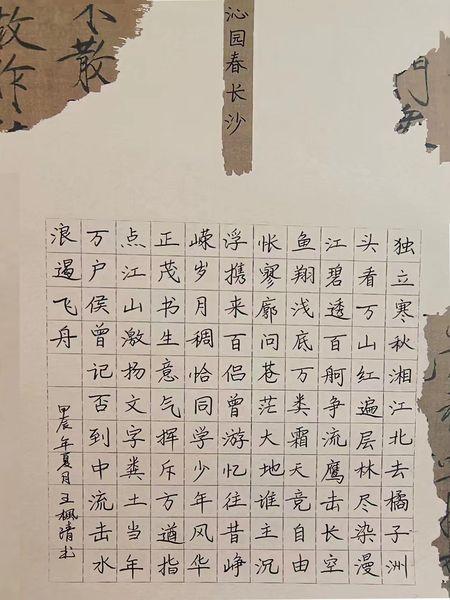 沁园春长沙
独立寒秋湘江北去橘子洲
头看万山红遍层林尽染漫
江碧透百舸争流鹰击长空
鱼翔浅底万类霜天竞自由
怅寥廓问苍茫大地谁主沉
浮携来百侣曾游忆往昔峥
嵘岁月稠恰同学少年风华
正茂书生意气挥斥方遒指
点江山激扬文字粪土当年
万户侯曾记否到中流击水
浪遏飞舟
甲辰年夏月王楓晴书